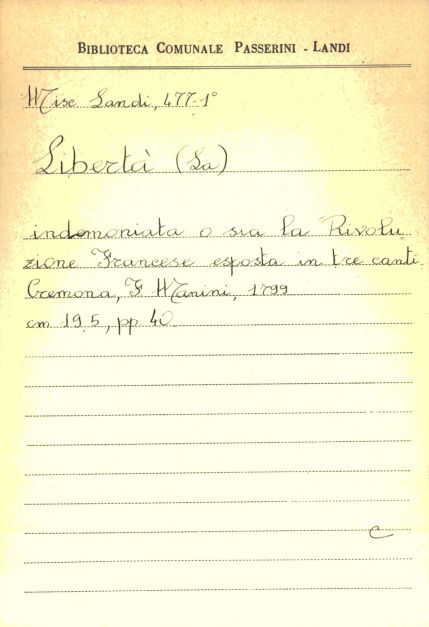 BIBLIOTECA COMUNALE PASSERINI - LANDI
Misc Landi, 477-1°
Libertà (La)
indemoniata o sia la Rivolu
zione Francese esposta in tre canti
Cremona, F Manini, 1799
cm 19,5, pp 40
C